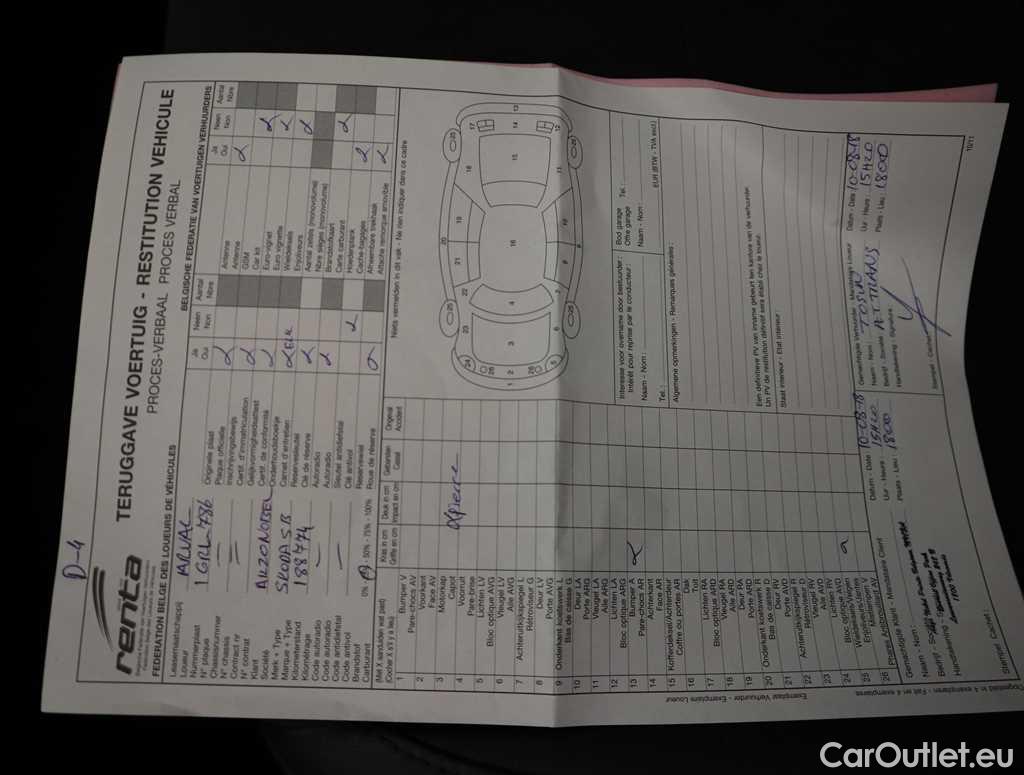 D-4
renta
TERUGGAVE VOERTUIG - RESTITUTION VEHICULE
PROCES-VERBAAL PROCES VERBAL
FEDERATION BELGE DES LOUEURS DE VÉHICULES
BELGISCHE FEDERATIE VAN VOERTUIGEN VERHUURDERS
Leasemaatschappij
Loueur ARVAL
Nummerplaat
N° plaque 1 GRL-786
Chassisnummer
N° chassis
Contract nr
N° contrat
Klant
Société AKZO NOBEL
Merk + Type
Marque + Type SKODA S.B
Kilometerstand
Kilométrage 188774
Code autoradio
Code autoradio
Code antidiefstal
Code antivol
Brandstof
Carburant 0% - 50% - 75% - 100%
Ja Oui
Neen Non
Aantal Nbre
Originele plaat
Plaque officielle
Inschrijvingsbewijs
Certif. d'immatriculation
Gelijkvormigheidsattest
Certif. de conformité
Onderhoudsboekje
Carnet d'entretien
Reservesleutel
Clé de réserve
Autoradio
Autoradio
Sleutel antidiefstal
Clé antivol
Reservewiel
Roue de réserve
Ja Oui
Neen Non
Aantal Nbre
Antenne
Antenne
GSM
Car kit
Euro-vignet
Euro vignette
Wieldeksels
Enjoliveurs
Aantal zetels (monovolume)
Nbre sièges (monovolume)
Brandstofkaart
Carte carburant
Hoedenplank
Cache-bagages
Afneembare trekhaak
Attache remorque amovible
(Met X aanduiden wat past)
(Cocher X s'il y a lieu)
Kras in cm
Griffe en cm
Deuk in cm
Impact en cm
Gebarsten
Cassé
Ongeval
Accident
Niets vermelden in dit vak - Ne rien indiquer dans ce cadre
1 Bumper V
Pare-chocs AV
2 Voorkant
Face AV
3 Motorkap
Capot
4 Voorruit
Pare-brise
5 Lichten LV
Bloc optique AVG
6 Vleugel LV
Aile AVG
7 Achteruitkijkspiegel L
Rétroviseur G
8 Deur LV
Porte AVG
9 Onderkant koetswerk L
Bas de caisse G
10 Deur LA
Porte ARG
11 Vleugel LA
Aile ARG
12 Lichten LA
Bloc optique ARG
13 Bumper A
Pare-chocs AR
14 Achterkant
Face AR
15 Kofferdeksel/Achterdeur
Coffre ou portes AR
16 Dak
Toit
17 Lichten RA
Bloc optique ARD
18 Vleugel RA
Aile ARD
19 Deur RA
Porte ARD
20 Onderkant koetswerk D
Bas de caisse D
21 Deur RV
Porte AVD
22 Achteruitkijkspiegel R
Rétroviseur D
23 Vleugel RV
Aile AVD
24 Lichten RV
Bloc optique AVD
25 Wieldeksels/Velgen
Enjoliveurs/Jantes
26 Mistlichten V
Phares Antibrouillard AV
Interesse voor overname door bestuurder :
Intérêt pour reprise par le conducteur :
Naam - Nom :
Tel :
Bod garage
Offre garage
Naam - Nom :
Tel. :
EUR (BTW - TVA excl.)
Algemene opmerkingen - Remarques générales :
Een definitieve PV van inname gebeurt ten kantore van de verhuurder.
Un PV de restitution définitif sera établi chez le loueur.
Staat interieur - Etat interieur :
Gemachtigde Klant - Mandataire Client
Naam - Nom :
Stempel - Cachet :
Datum - Date 10-08-18
Uur - Heure : 15H20
Plaats - Lieu : 1800
Gemachtigde Verhuurder - Mandataire Loueur
Naam - Nom :
Bedrijf - Société
Handtekening - Signature :
Stempel - Cachet :
Datum - Date 10-08-18
Uur - Heure : 15H20
Plaats - Lieu : 1800
Exemplaar Verhuurder - Exemplaire Loueur
Opgesteld in 4 exemplaren - Fait en 4 exemplaires
10/11
CarOutlet.eu